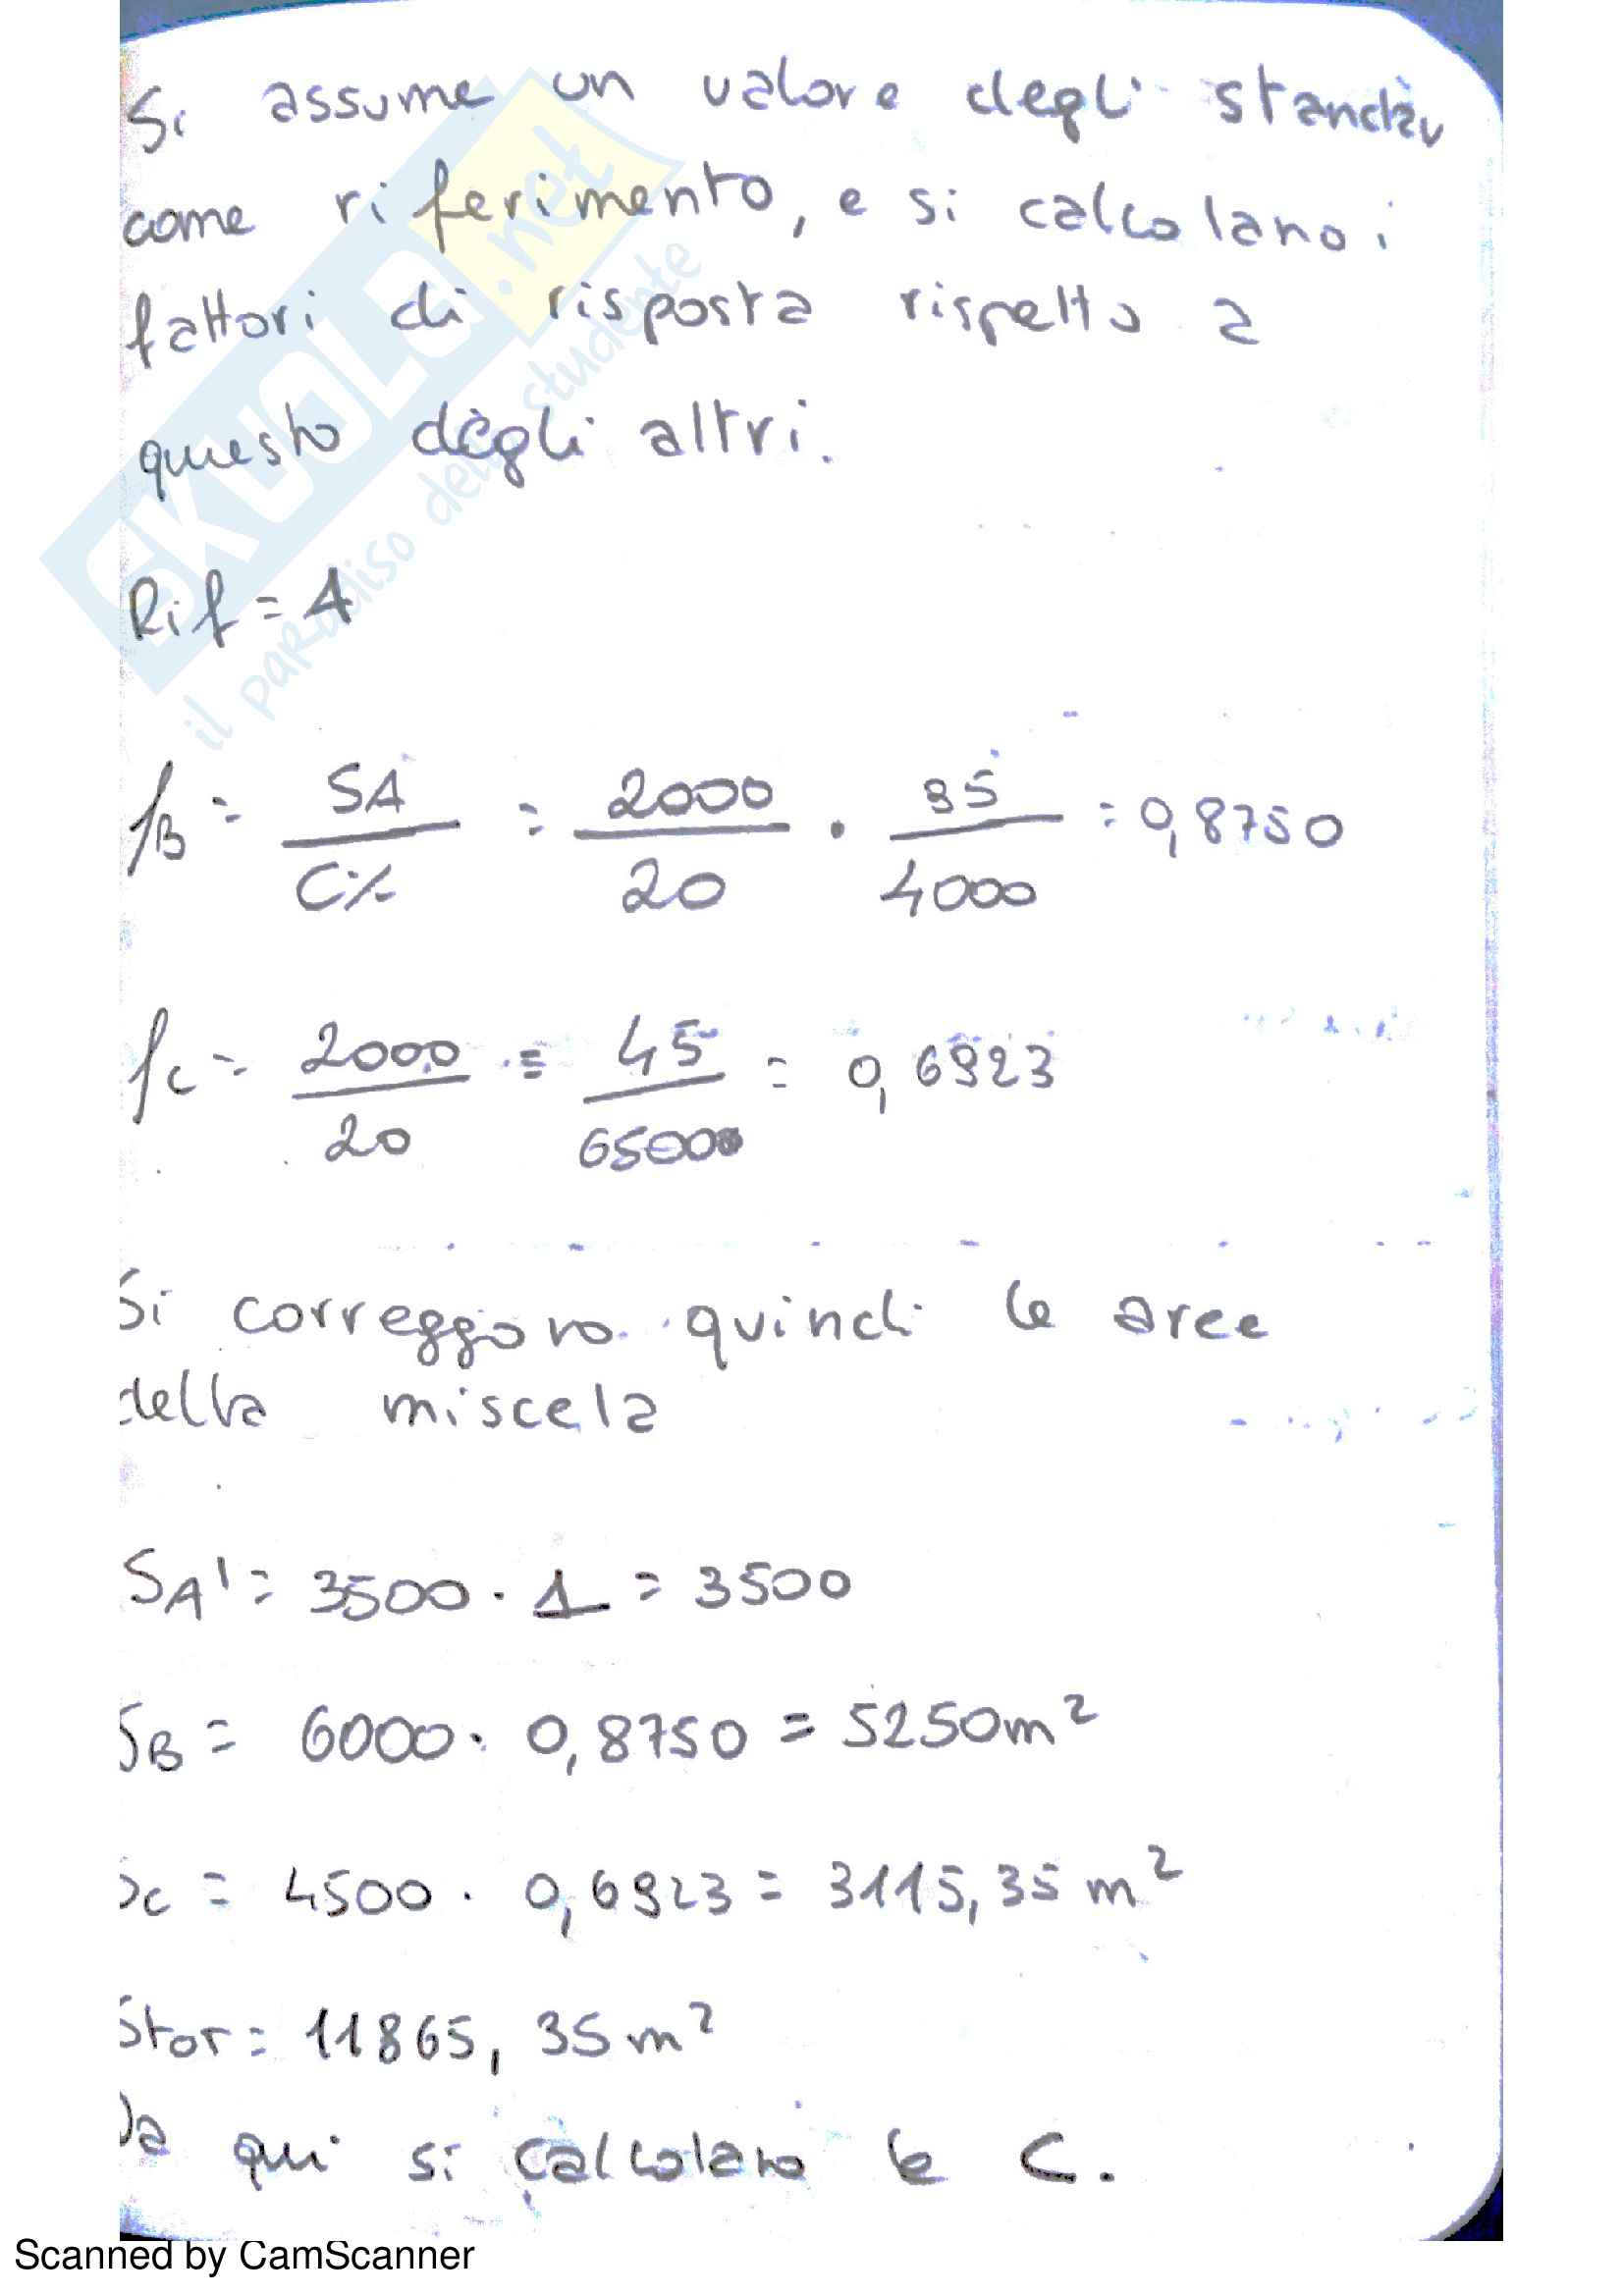 Si assume un valore degli standar
come riferimento, e si calcolano i
fattori di risposta rispetto a
questo degli altri.
Rif = A
fB = SA / C% = 2000 / 20 · 35 / 4000 = 0,8750
fc = 2000 / 20 = 45 / 6500 = 0,6923
Si correggono quindi le aree
della miscela
SA' = 3500 · 1 = 3500
SB = 6000 · 0,8750 = 5250 m²
Sc = 4500 · 0,6923 = 3115,35 m²
Stot = 11865,35 m²
Da qui si calcolano le C.
SKUOLA.net
il paradiso dello studente
Scanned by CamScanner